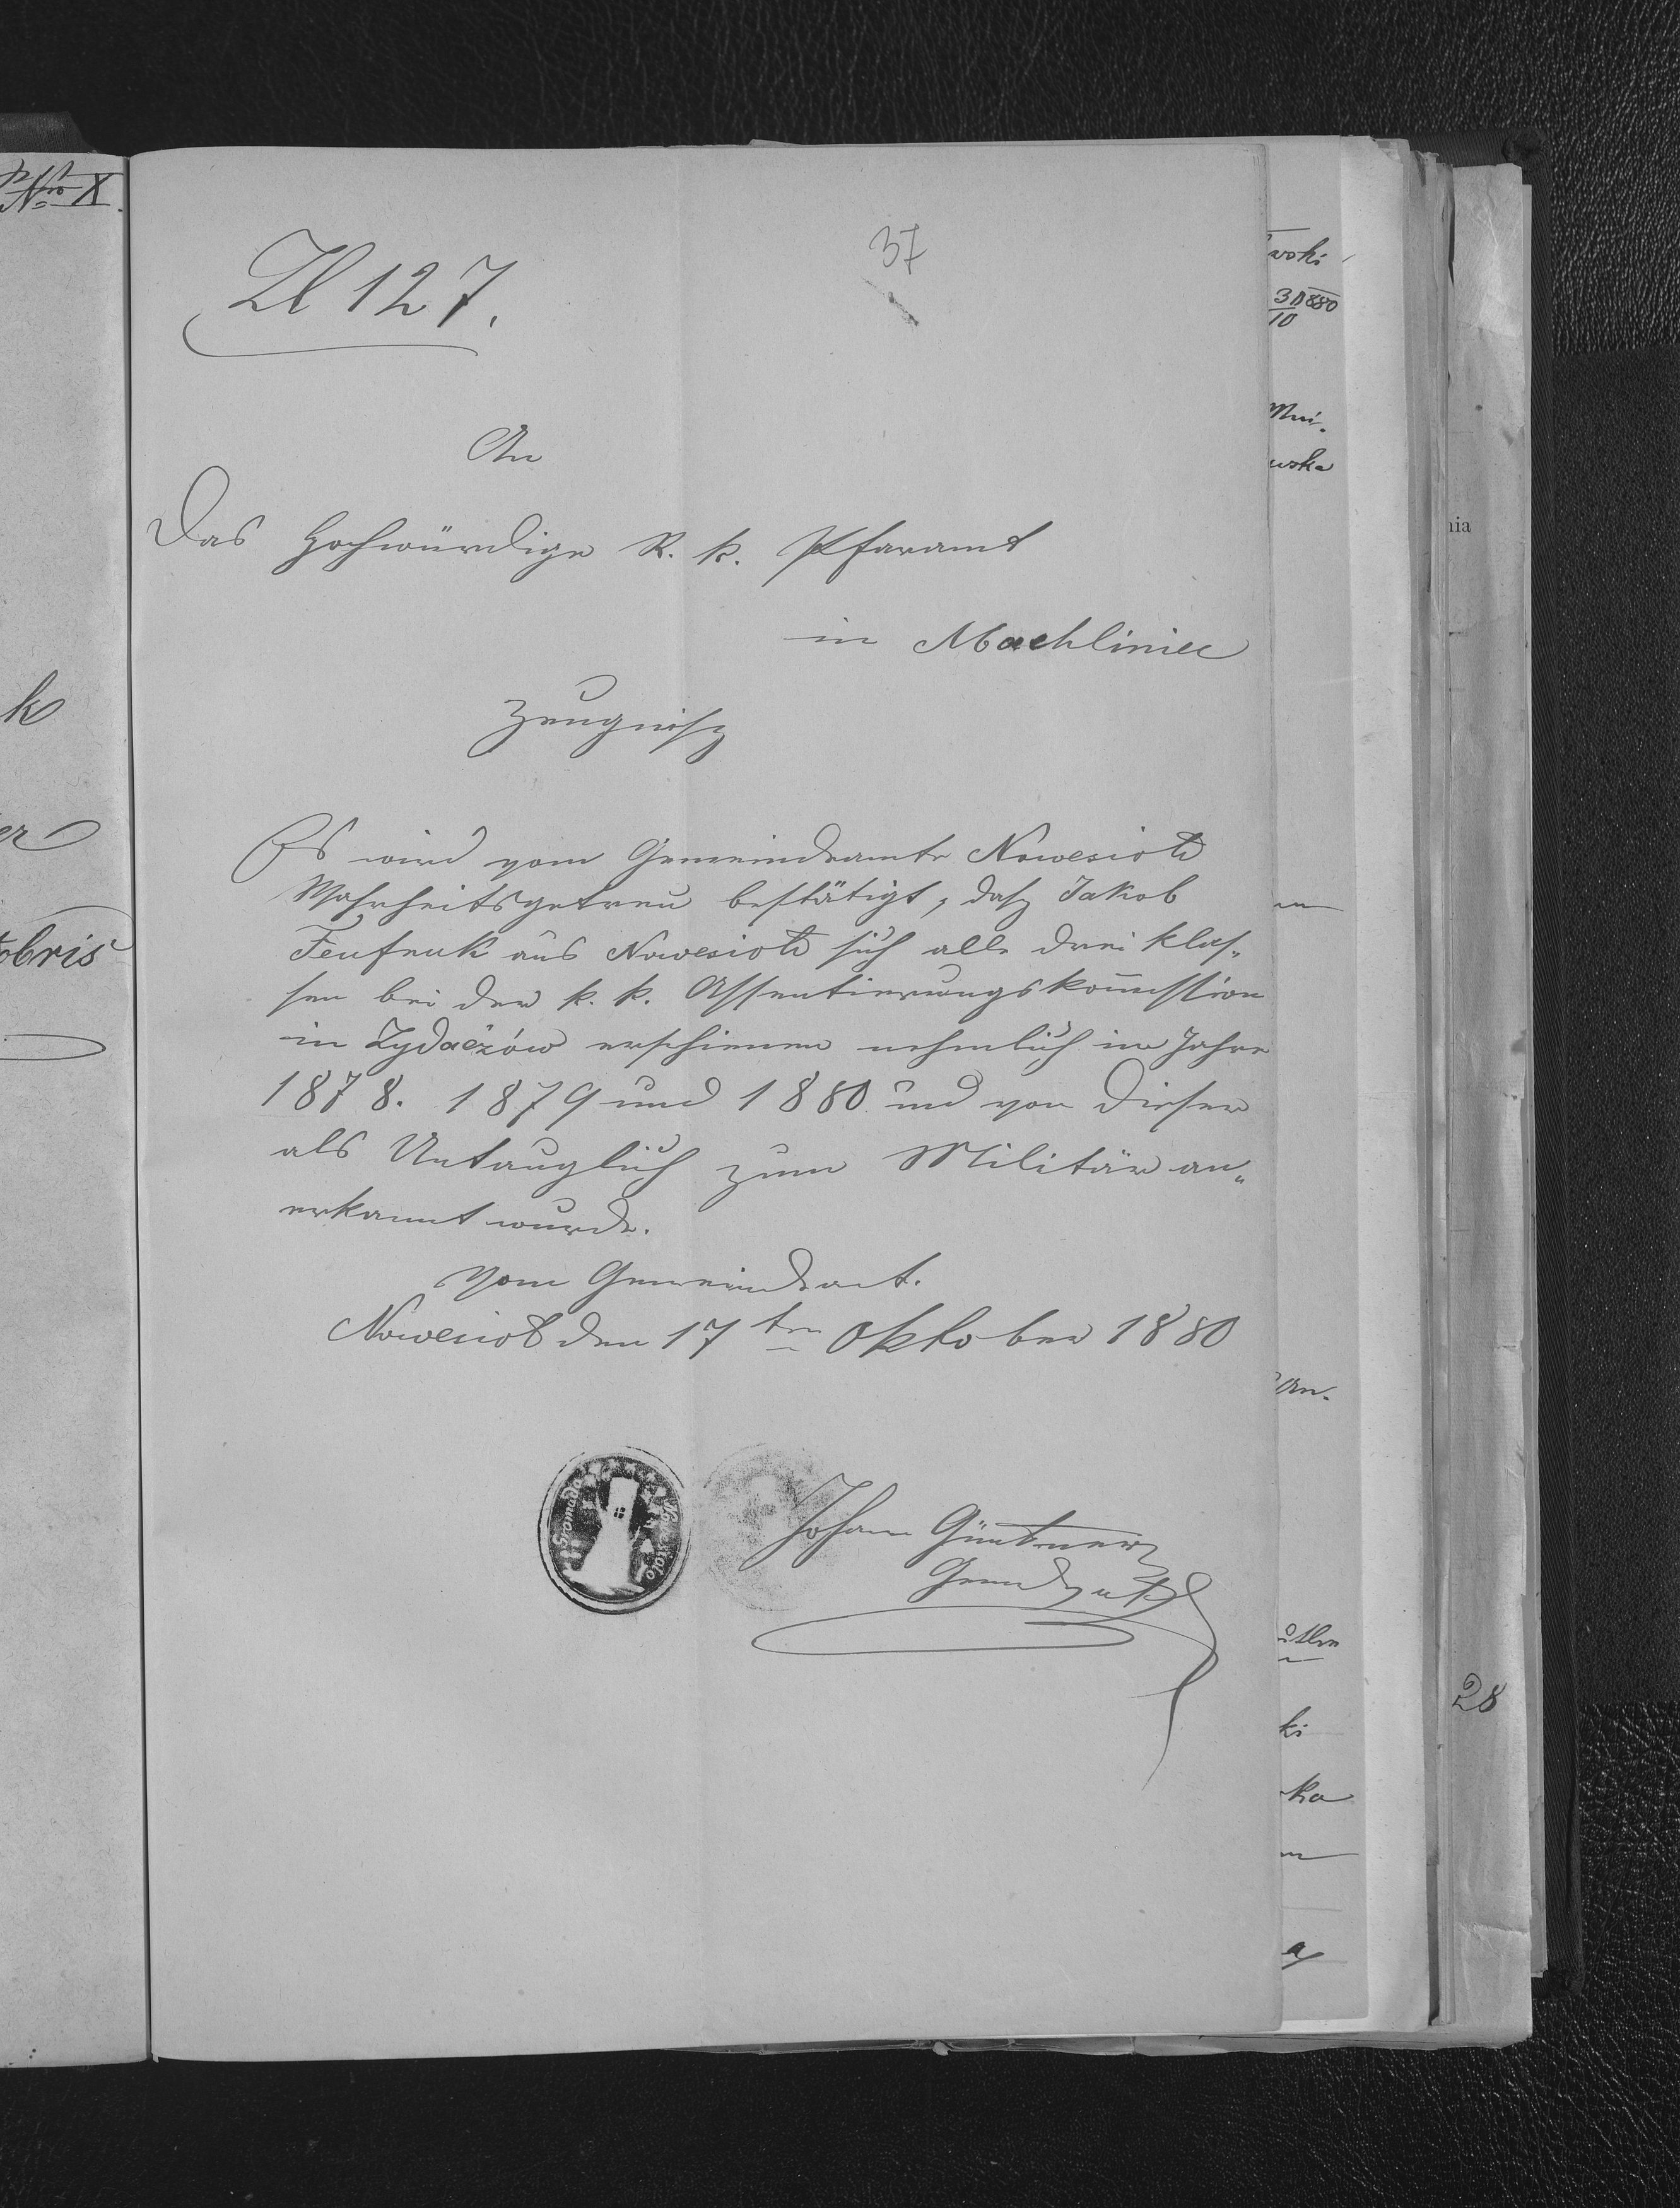 37
Zl 127.
An
Das Hochwürdige R. k. Pfaramt
in Machliniec
Zeugniß
Es wird vom Gemeindeamte Nowesioło
Wahrheitsgetreu bestätigt, daß Jakob
Feufeuk aus Nowesioło sich alle drei klas„
sen bei der k. k. Assentierungskom̄ission
in Zydaczów erschienen nehmlich im Jahre
1878. 1879 und 1880 und von dieser
als Untauglich zum Militär an„
erkannt wurde.
Vom Gemeindeamt.
Nowesioło den 17ten Oktober 1880
Gromada
Johann Güntner
28